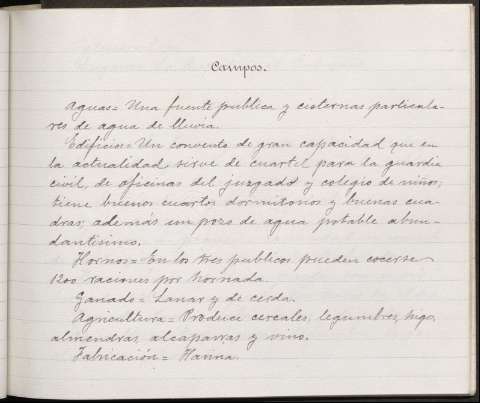 Campos.
Aguas = Una fuente publica y cisternas particula-
res de agua de lluvia.
Edificios = Un convento de gran capacidad que en
la actualidad sirve de cuartel para la guardia
civil, de oficinas del juzgado y colegio de niños;
tiene buenos cuartos dormitorios y buenas cua-
dras; además un pozo de agua potable abun-
dantísimo.
Hornos = En los tres publicos pueden cocerse
1200 raciones por hornada.
Ganado = Lanar y de cerda.
Agricultura = Produce cereales, legumbres, higos,
almendras, alcaparras y vino.
Fabricación = Harina.